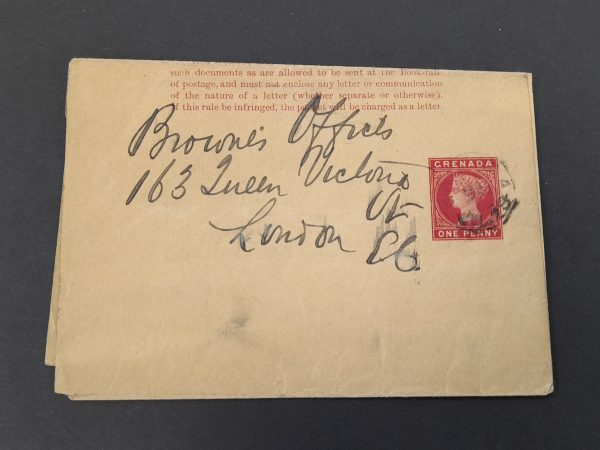 such documents as are allowed to be sent at the Book-rate
of postage, and must not enclose any letter or communication
of the nature of a letter (whether separate or otherwise).
If this rule be infringed, the packet will be charged as a letter.
Browne's Offices
163 Queen Victoria
St
London EC
GRENADA
ONE PENNY